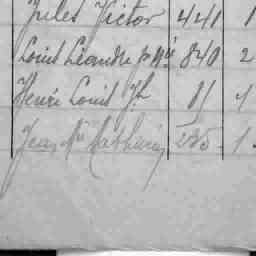 Jules Victor 441 1
Louis Léandre 840 2
Henri Louis Jh 81 1
Jean Mie Mathurin 285 1